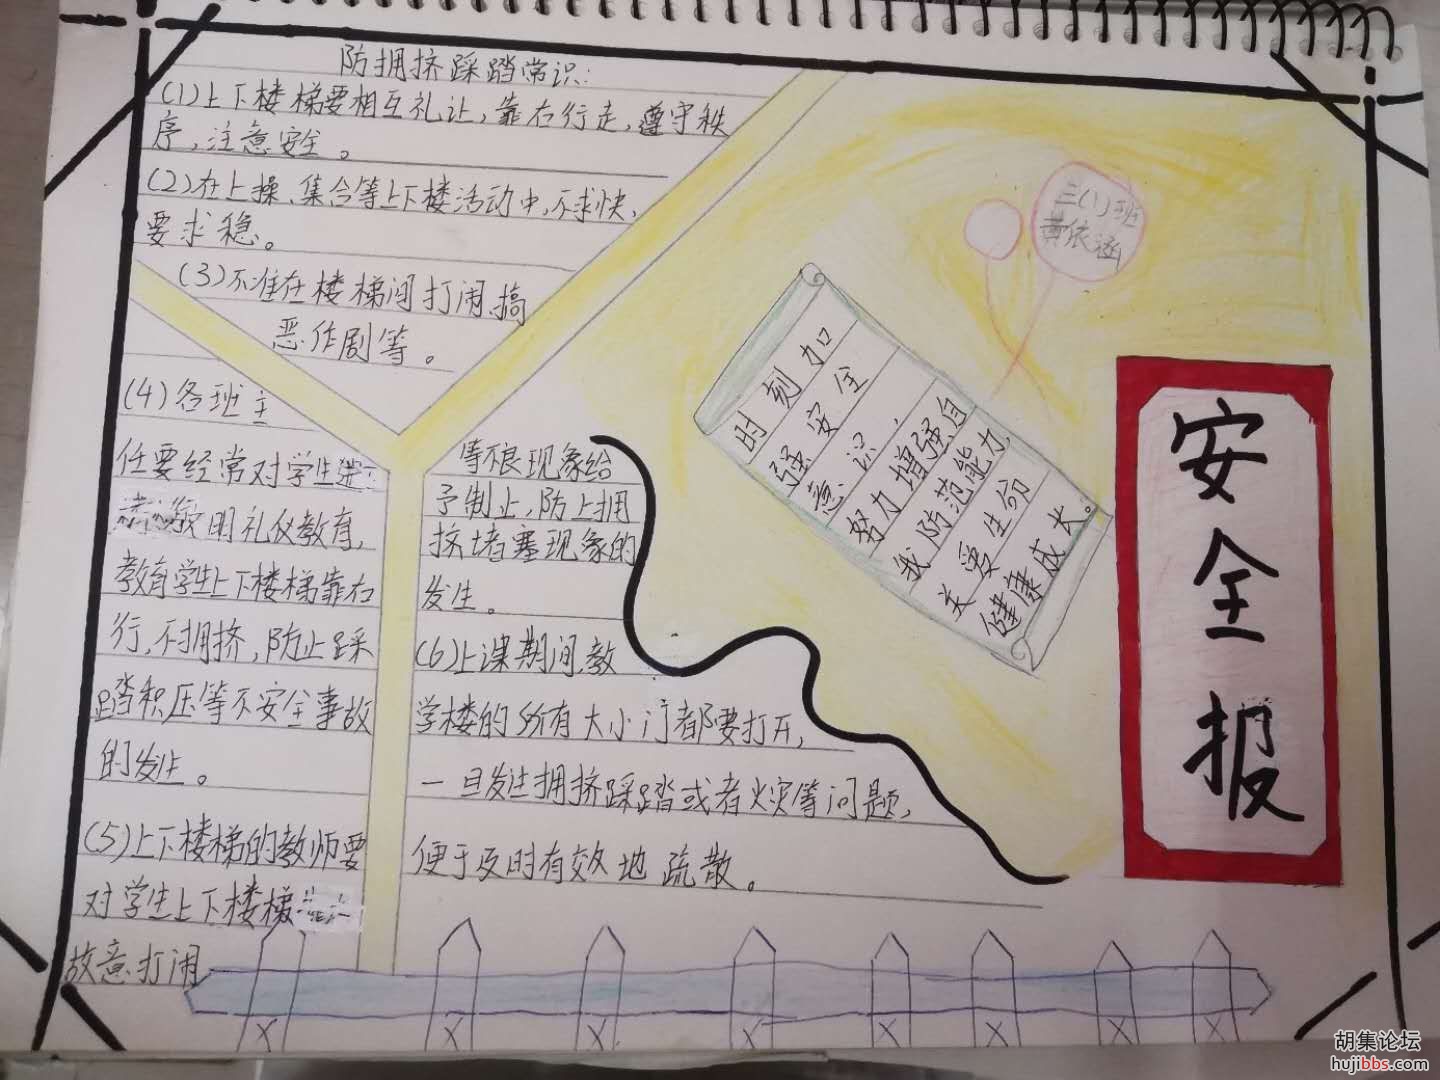 防拥挤踩踏常识:
(1)上下楼梯要相互礼让,靠右行走,遵守秩
序,注意安全。
(2)在上操、集合等上下楼活动中,不求快,
要求稳。
(3)不准在楼梯间打闹、搞
恶作剧等。
(4)各班主
任要经常对学生进
明礼仪教育,
教育学生上下楼梯靠右
行,不拥挤,防止踩
踏积压等不安全事故
的发生。
(5)上下楼梯的教师要
对学生上下楼梯
故意打闹
等不良现象给
予制止,防止拥
挤堵塞现象的
发生。
(6)上课期间,教
学楼的所有大小门都要打开,
一旦发生拥挤踩踏或者火灾等问题,
便于及时有效地疏散。
三(1)班
黄依涵
时刻加
强安全
意识,
努力增强自
我防范能力,
关爱生命
健康成长。
安全报
胡集论坛
hujibbs.com